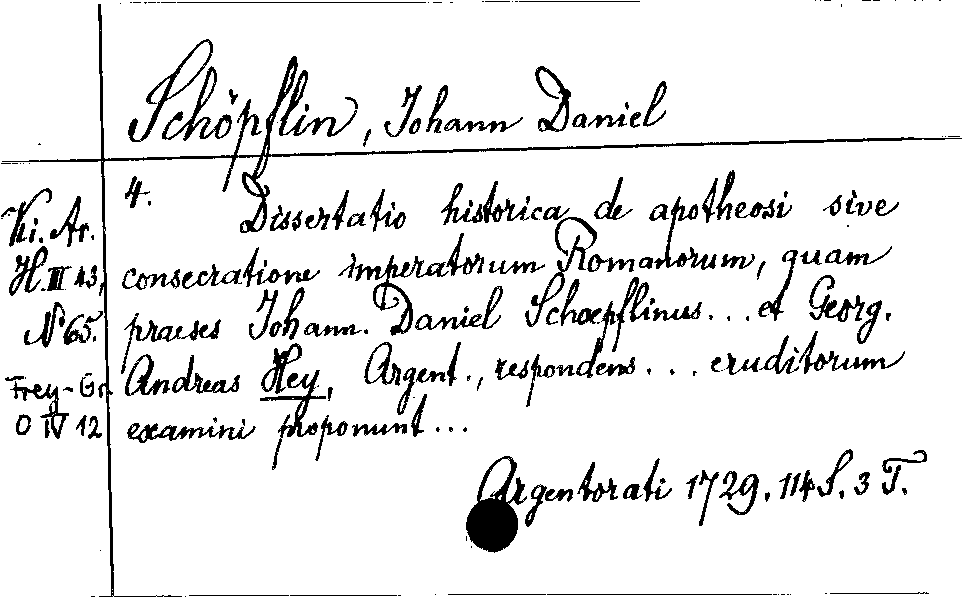 Schöpflin, Johann Daniel
Ki. Ar.
H. III 43,
No 65.
Frey-Gr.
O IV 12
4. Dissertatio historica de apotheosi sive
consecratione imperatorum Romanorum, quam
praeses Johann. Daniel Schoepflinus... et Georg.
Andreas Hey, Argent., respondens... eruditorum
examini proponunt...
Argentorati 1729. 114 S. 3 T.